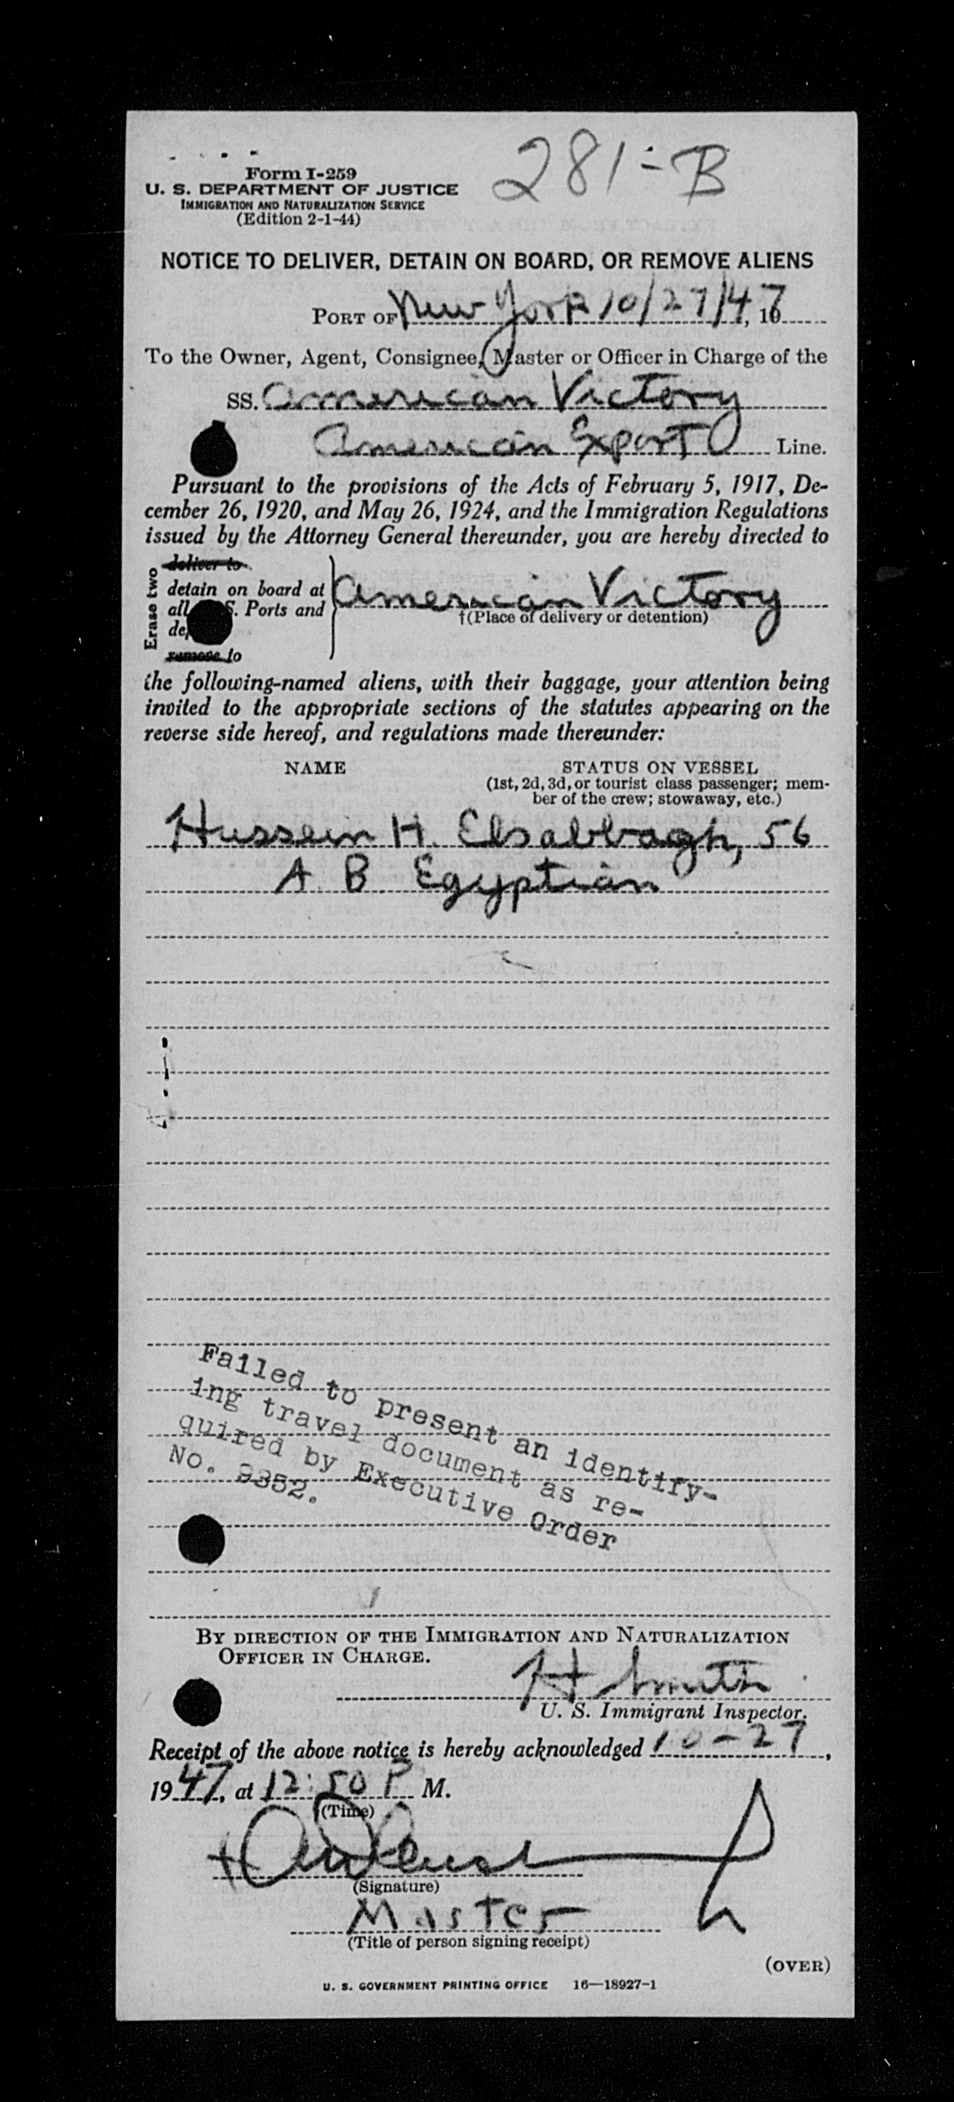 281-B
Form I-259
U. S. DEPARTMENT OF JUSTICE
IMMIGRATION AND NATURALIZATION SERVICE
(Edition 2-1-44)
NOTICE TO DELIVER, DETAIN ON BOARD, OR REMOVE ALIENS
PORT OF New York 10/27/47, 19
To the Owner, Agent, Consignee, Master or Officer in Charge of the
SS. American Victory
American Export Line.
Pursuant to the provisions of the Acts of February 5, 1917, De-
cember 26, 1920, and May 26, 1924, and the Immigration Regulations
issued by the Attorney General thereunder, you are hereby directed to
Erase two
deliver to
detain on board at
all S. Ports and
de
remove to
American Victory
†(Place of delivery or detention)
the following-named aliens, with their baggage, your attention being
invited to the appropriate sections of the statutes appearing on the
reverse side hereof, and regulations made thereunder:
NAME STATUS ON VESSEL
(1st, 2d, 3d, or tourist class passenger; mem-
ber of the crew; stowaway, etc.)
Hussein H. Elsabbagh, 56
A. B. Egyptian
Failed to present an identify-
ing travel document as re-
quired by Executive Order
No. 9352.
BY DIRECTION OF THE IMMIGRATION AND NATURALIZATION
OFFICER IN CHARGE.
H Smith
U. S. Immigrant Inspector.
Receipt of the above notice is hereby acknowledged 10-27,
1947, at 12:50 P M.
(Time)
(Signature)
Master
(Title of person signing receipt)
(OVER)
U. S. GOVERNMENT PRINTING OFFICE 16—18927-1